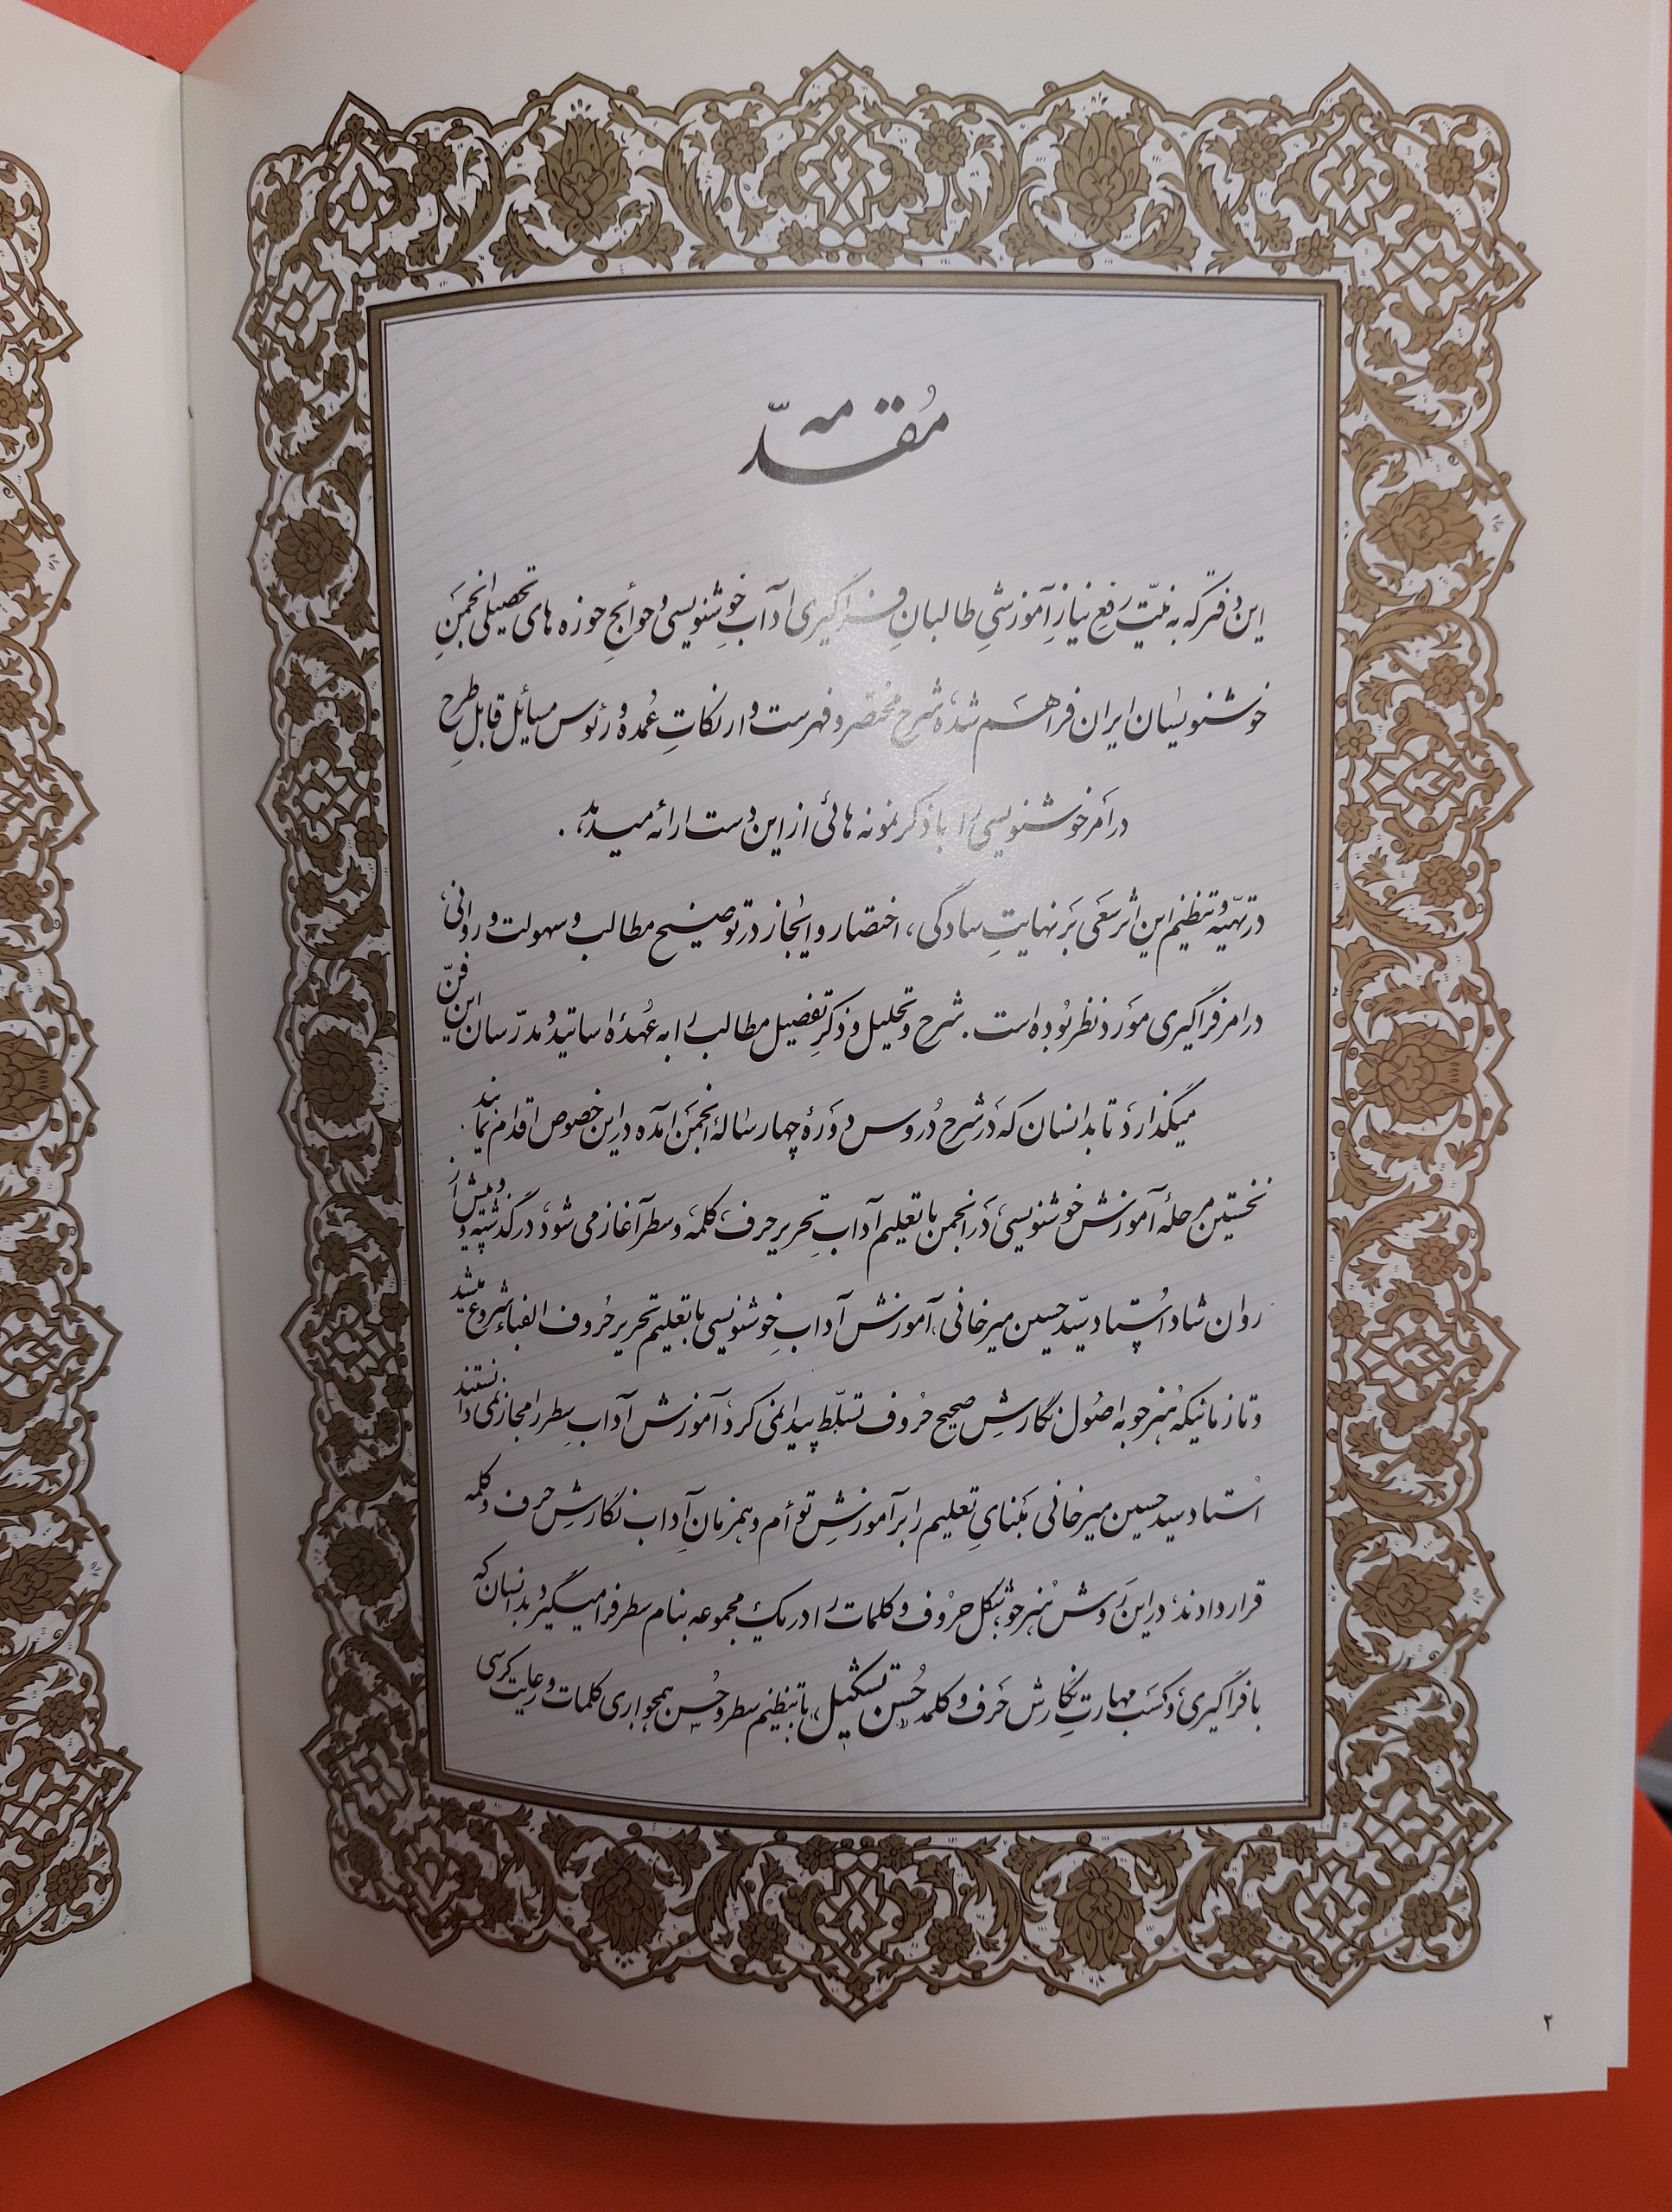 مُقدّمه
این دفتر که به نیّت رفعِ نیازِ آموزشیِ طالبانِ فراگیری آدابِ خوشنویسی و حوائجِ حوزه های تحصیلی انجمنِ
خوشنویسان ایران فراهم شده، شرح مختصر و فهرست وار نکاتِ عُمده و رئوس مسائل قابل طرحِ
در اَمر خوشنویسی را با ذکر نمونه هائی از این دست ارائه میدهد .
در تهیّه و تنظیم این اثر سَعَی بَر نهایتِ سادگی ، اختصار و ایجاز در توضیح مطالب و سهولت و روانی،
در امر فراگیری مَورد نظر بُوده است . شرح و تحلیل و ذکرِ تفصیل مطالب را به عُهدۀ اساتید و مدرّسان این فنّ
میگذارد تا بدانسان که دَر شرح دُروس دورَۀ چهار سالۀ انجمَن آمده در این خصوص اقدام نمایند .
نخستین مرحلۀ آموزش خوشنویسی، دَر انجمن با تعلیم آدابِ تحریر حرف، کلمه، و سطر آغاز می شود، در گذشته و پیش از
روان شاد اُستاد سیّد حسین میرخانی، آموزش آدابِ خوشنویسی با تعلیم تحریر حُروف الفباء شروع میشد
و تا زمانیکه هُنرجو به اصُول نگارشِ صحیح حُروف تسلّط پیدا نمی کرد، آموزش آدابِ سطر را مجاز نمی دانستند
اُستاد سید حسین میرخانی مَبنایِ تعلیم را بر آموزشِ توأم و همزمانِ آداب نگارشِ حرف و کلمه
قرار دادند، در این رَوش هُنرجو، شکل حرُوف و کلمات را در یک مجموعه بنام سطر فرا میگیرد بدانسان که
با فراگیری، و کسَب مهارتِ نگارش حَرف و کلمه «حُسن تشکیل»، با تنظیم سطر و حُسن همجواری کلمات و رعایت کرسی
۲